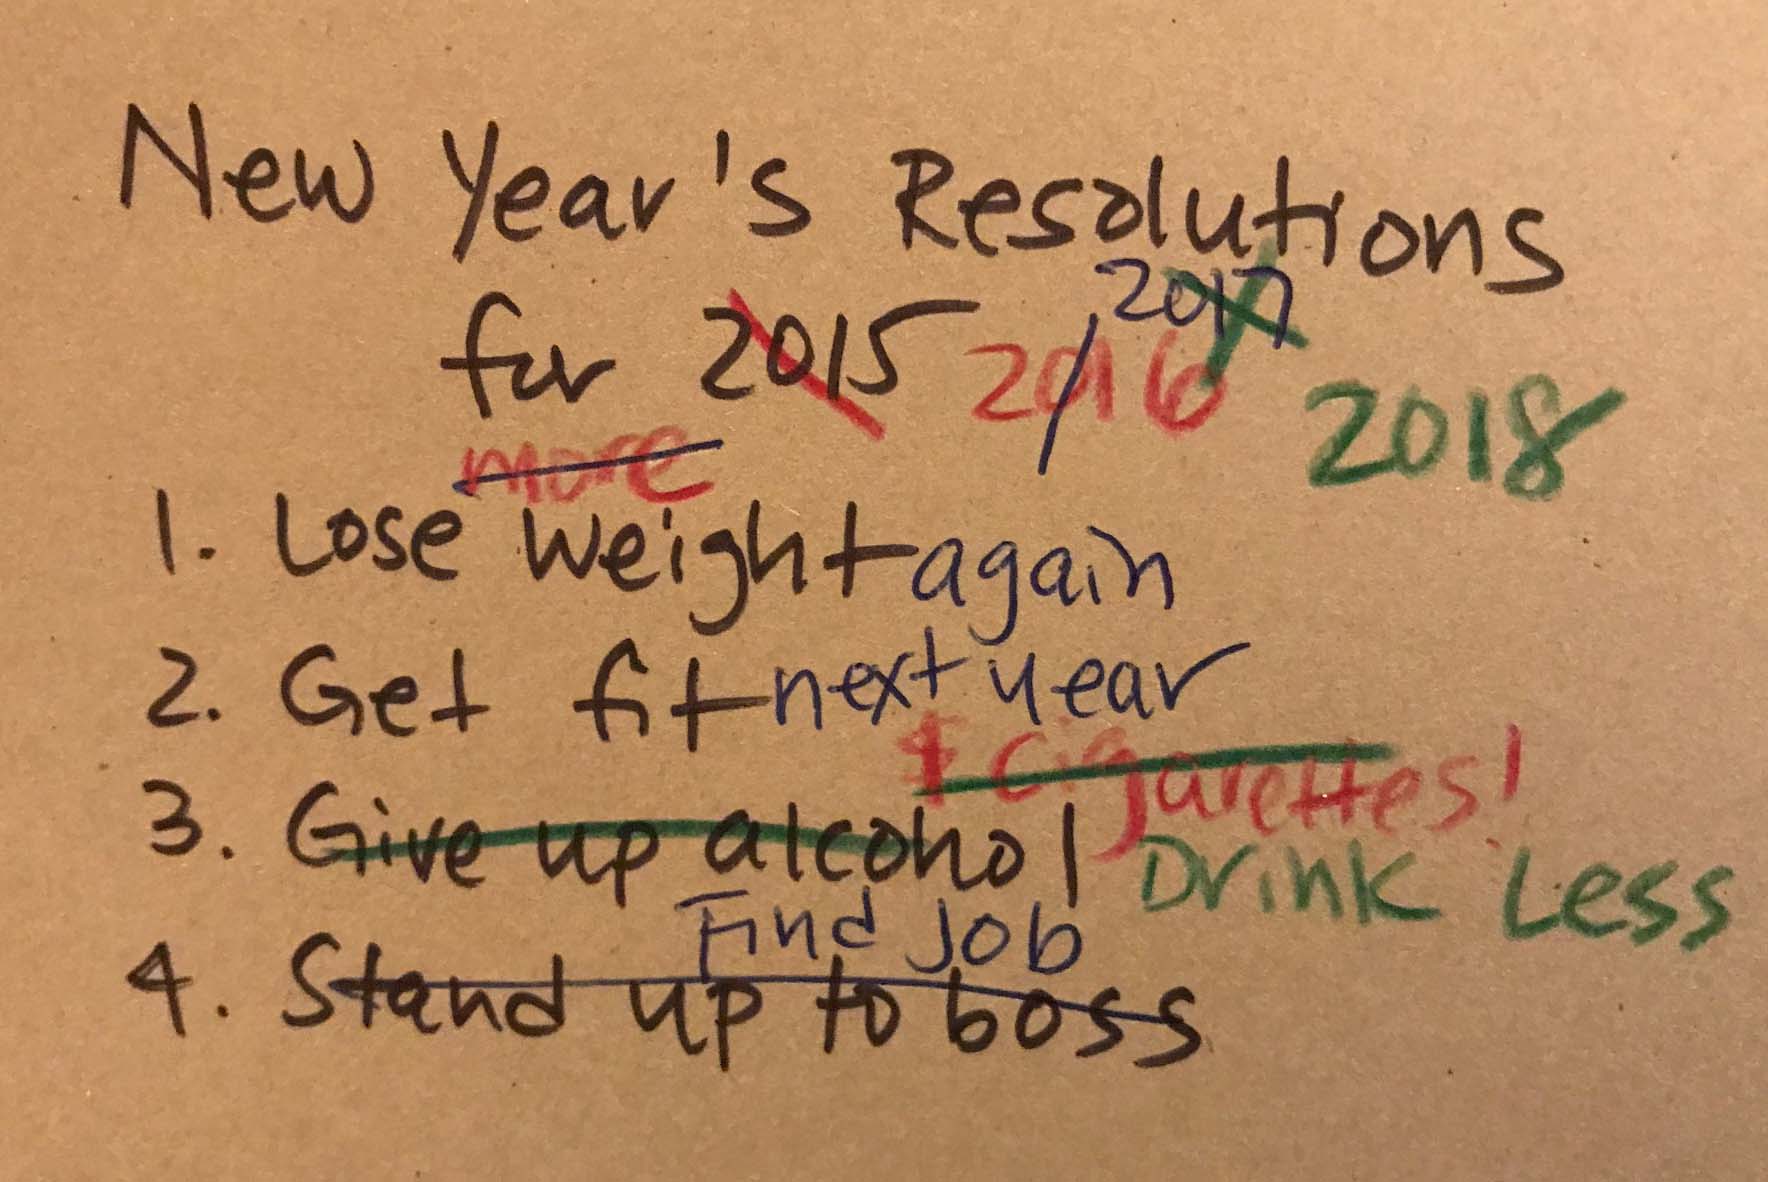 New Year's Resolutions
2017
for 2015 2016 / 2018
more
1. Lose weight again
2. Get fit next year
& cigarettes!
3. Give up alcohol Drink Less
Find Job
4. Stand up to boss